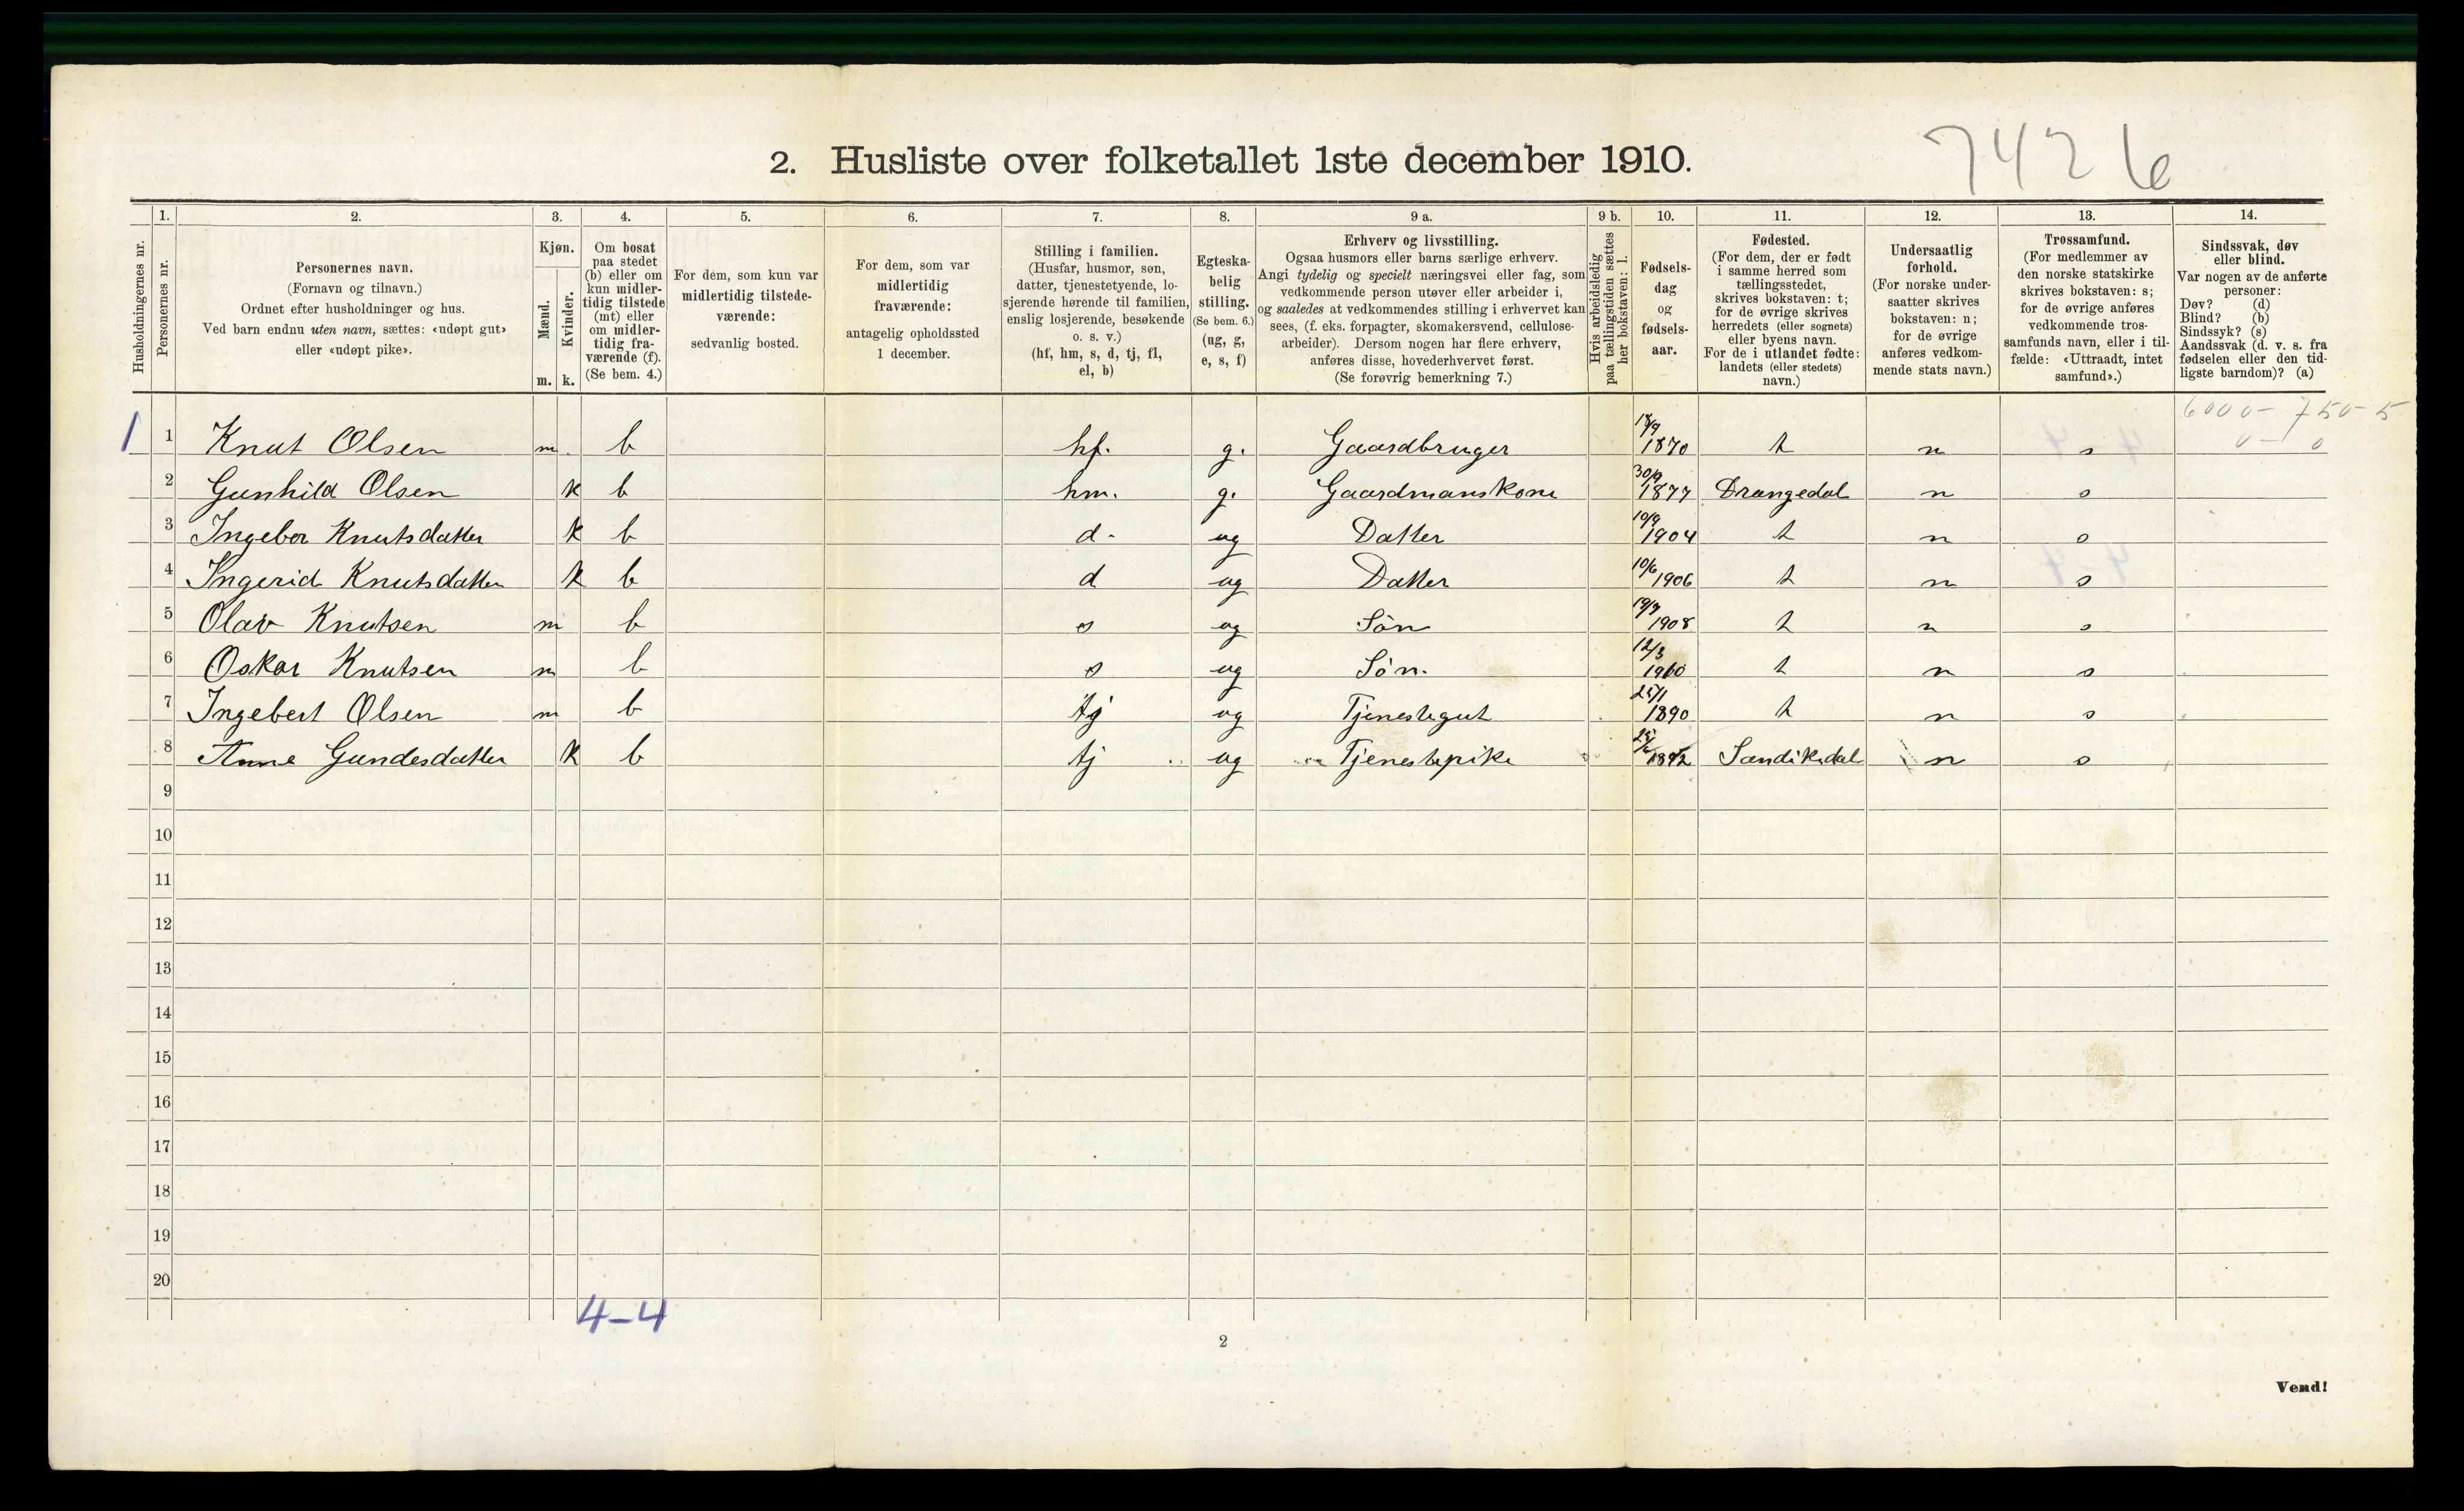 7426
2. Husliste over folketallet 1ste december 1910.
Husholdningernes nr.
1.
Personernes nr.
2.
Personernes navn.
(Fornavn og tilnavn.)
Ordnet efter husholdninger og hus.
Ved barn endnu uten navn, sættes: «udøpt gut»
eller «udøpt pike».
3.
Kjøn.
Mænd.
m.
Kvinder.
k.
4.
Om bosat
paa stedet
(b) eller om
kun midler-
tidig tilstede
(mt) eller
om midler-
tidig fra-
værende (f).
(Se bem. 4.)
5.
For dem, som kun var
midlertidig tilstede-
værende:
sedvanlig bosted.
6.
For dem, som var
midlertidig
fraværende:
antagelig opholdssted
1 december.
7.
Stilling i familien.
(Husfar, husmor, søn,
datter, tjenestetyende, lo-
sjerende hørende til familien,
enslig losjerende, besøkende
o. s. v.)
(hf, hm, s, d, tj, fl,
el, b)
8.
Egteska-
belig
stilling.
(Se bem. 6.)
(ug, g,
e, s, f)
9 a.
Erhverv og livsstilling.
Ogsaa husmors eller barns særlige erhverv.
Angi tydelig og specielt næringsvei eller fag, som
vedkommende person utøver eller arbeider i,
og saaledes at vedkommendes stilling i erhvervet kan
sees, (f. eks. forpagter, skomakersvend, cellulose-
arbeider). Dersom nogen har flere erhverv,
anføres disse, hovederhvervet først.
(Se forøvrig bemerkning 7.)
9 b.
Hvis arbeidsledig
paa tællingstiden sættes
her bokstaven: l.
10.
Fødsels-
dag
og
fødsels-
aar.
11.
Fødested.
(For dem, der er født
i samme herred som
tællingsstedet,
skrives bokstaven: t;
for de øvrige skrives
herredets (eller sognets)
eller byens navn.
For de i utlandet fødte:
landets (eller stedets)
navn.)
12.
Undersaatlig
forhold.
(For norske under-
saatter skrives
bokstaven: n;
for de øvrige
anføres vedkom-
mende stats navn.)
13.
Trossamfund.
(For medlemmer av
den norske statskirke
skrives bokstaven: s;
for de øvrige anføres
vedkommende tros-
samfunds navn, eller i til-
fælde: «Uttraadt, intet
samfund».)
14.
Sindssvak, døv
eller blind.
Var nogen av de anførte
personer:
Døv? (d)
Blind? (b)
Sindssyk? (s)
Aandssvak (d. v. s. fra
fødselen eller den tid-
ligste barndom)? (a)
6000 - 750 - 5
0 - 0
1 1 Knut Olsen m b hf. g. Gaardbruger 18/9 1870 t n s
2 Gunhild Olsen k b hm. g. Gaardmanskone 30/9 1877 Drangedal n s
3 Ingebor Knutsdatter k b d- ug Datter 10/9 1904 t n s
4 Ingerid Knutsdatter k b d ug Datter 10/6 1906 t n s
5 Olav Knutsen m b s ug Søn 1908 t n s
6 Oskar Knutsen m b s ug Søn. 12/3 1910 t n s
7 Ingebert Olsen m b tj ug Tjenestegut 25/1 1890 t n s
8 Anne Gundesdatter k b tj ug Tjenestepike 1892 Sandikedal n s
9
10
11
12
13
14
15
16
17
18
19
20
4-4
2
Vend!